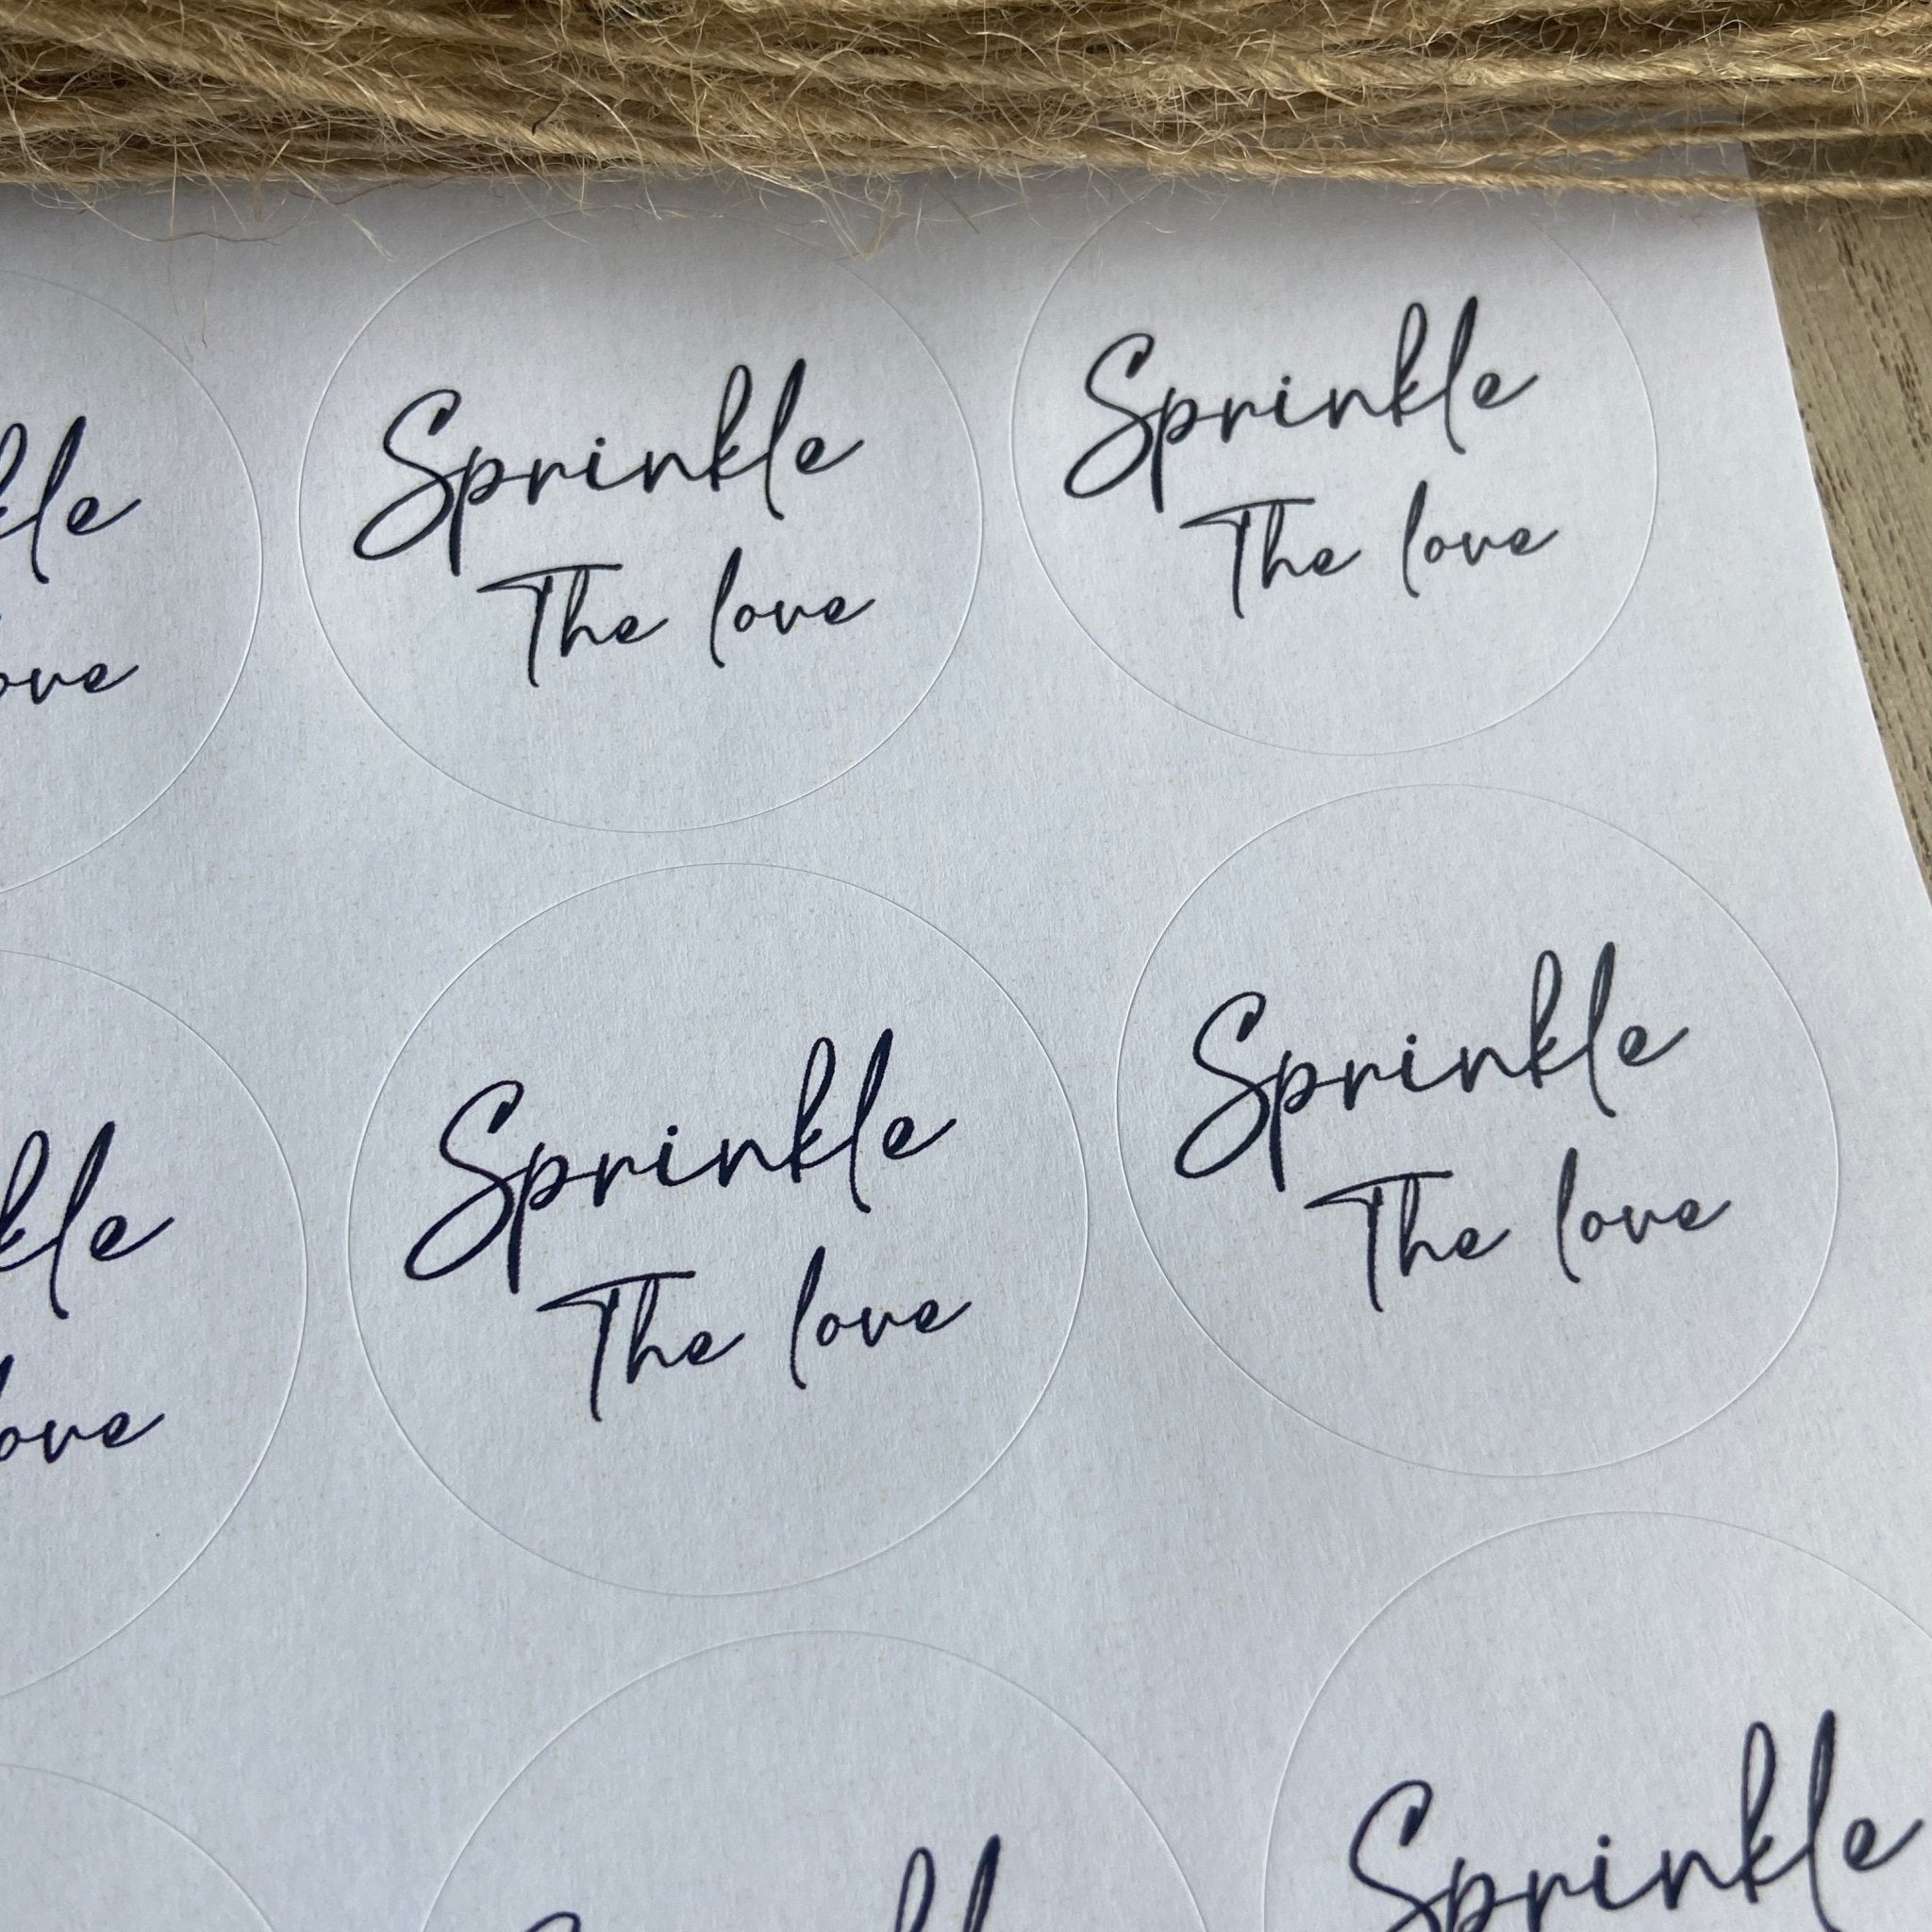 Sprinkle
The love
Sprinkle
The love
Sprinkle
The love
Sprinkle
The love
Sprinkle